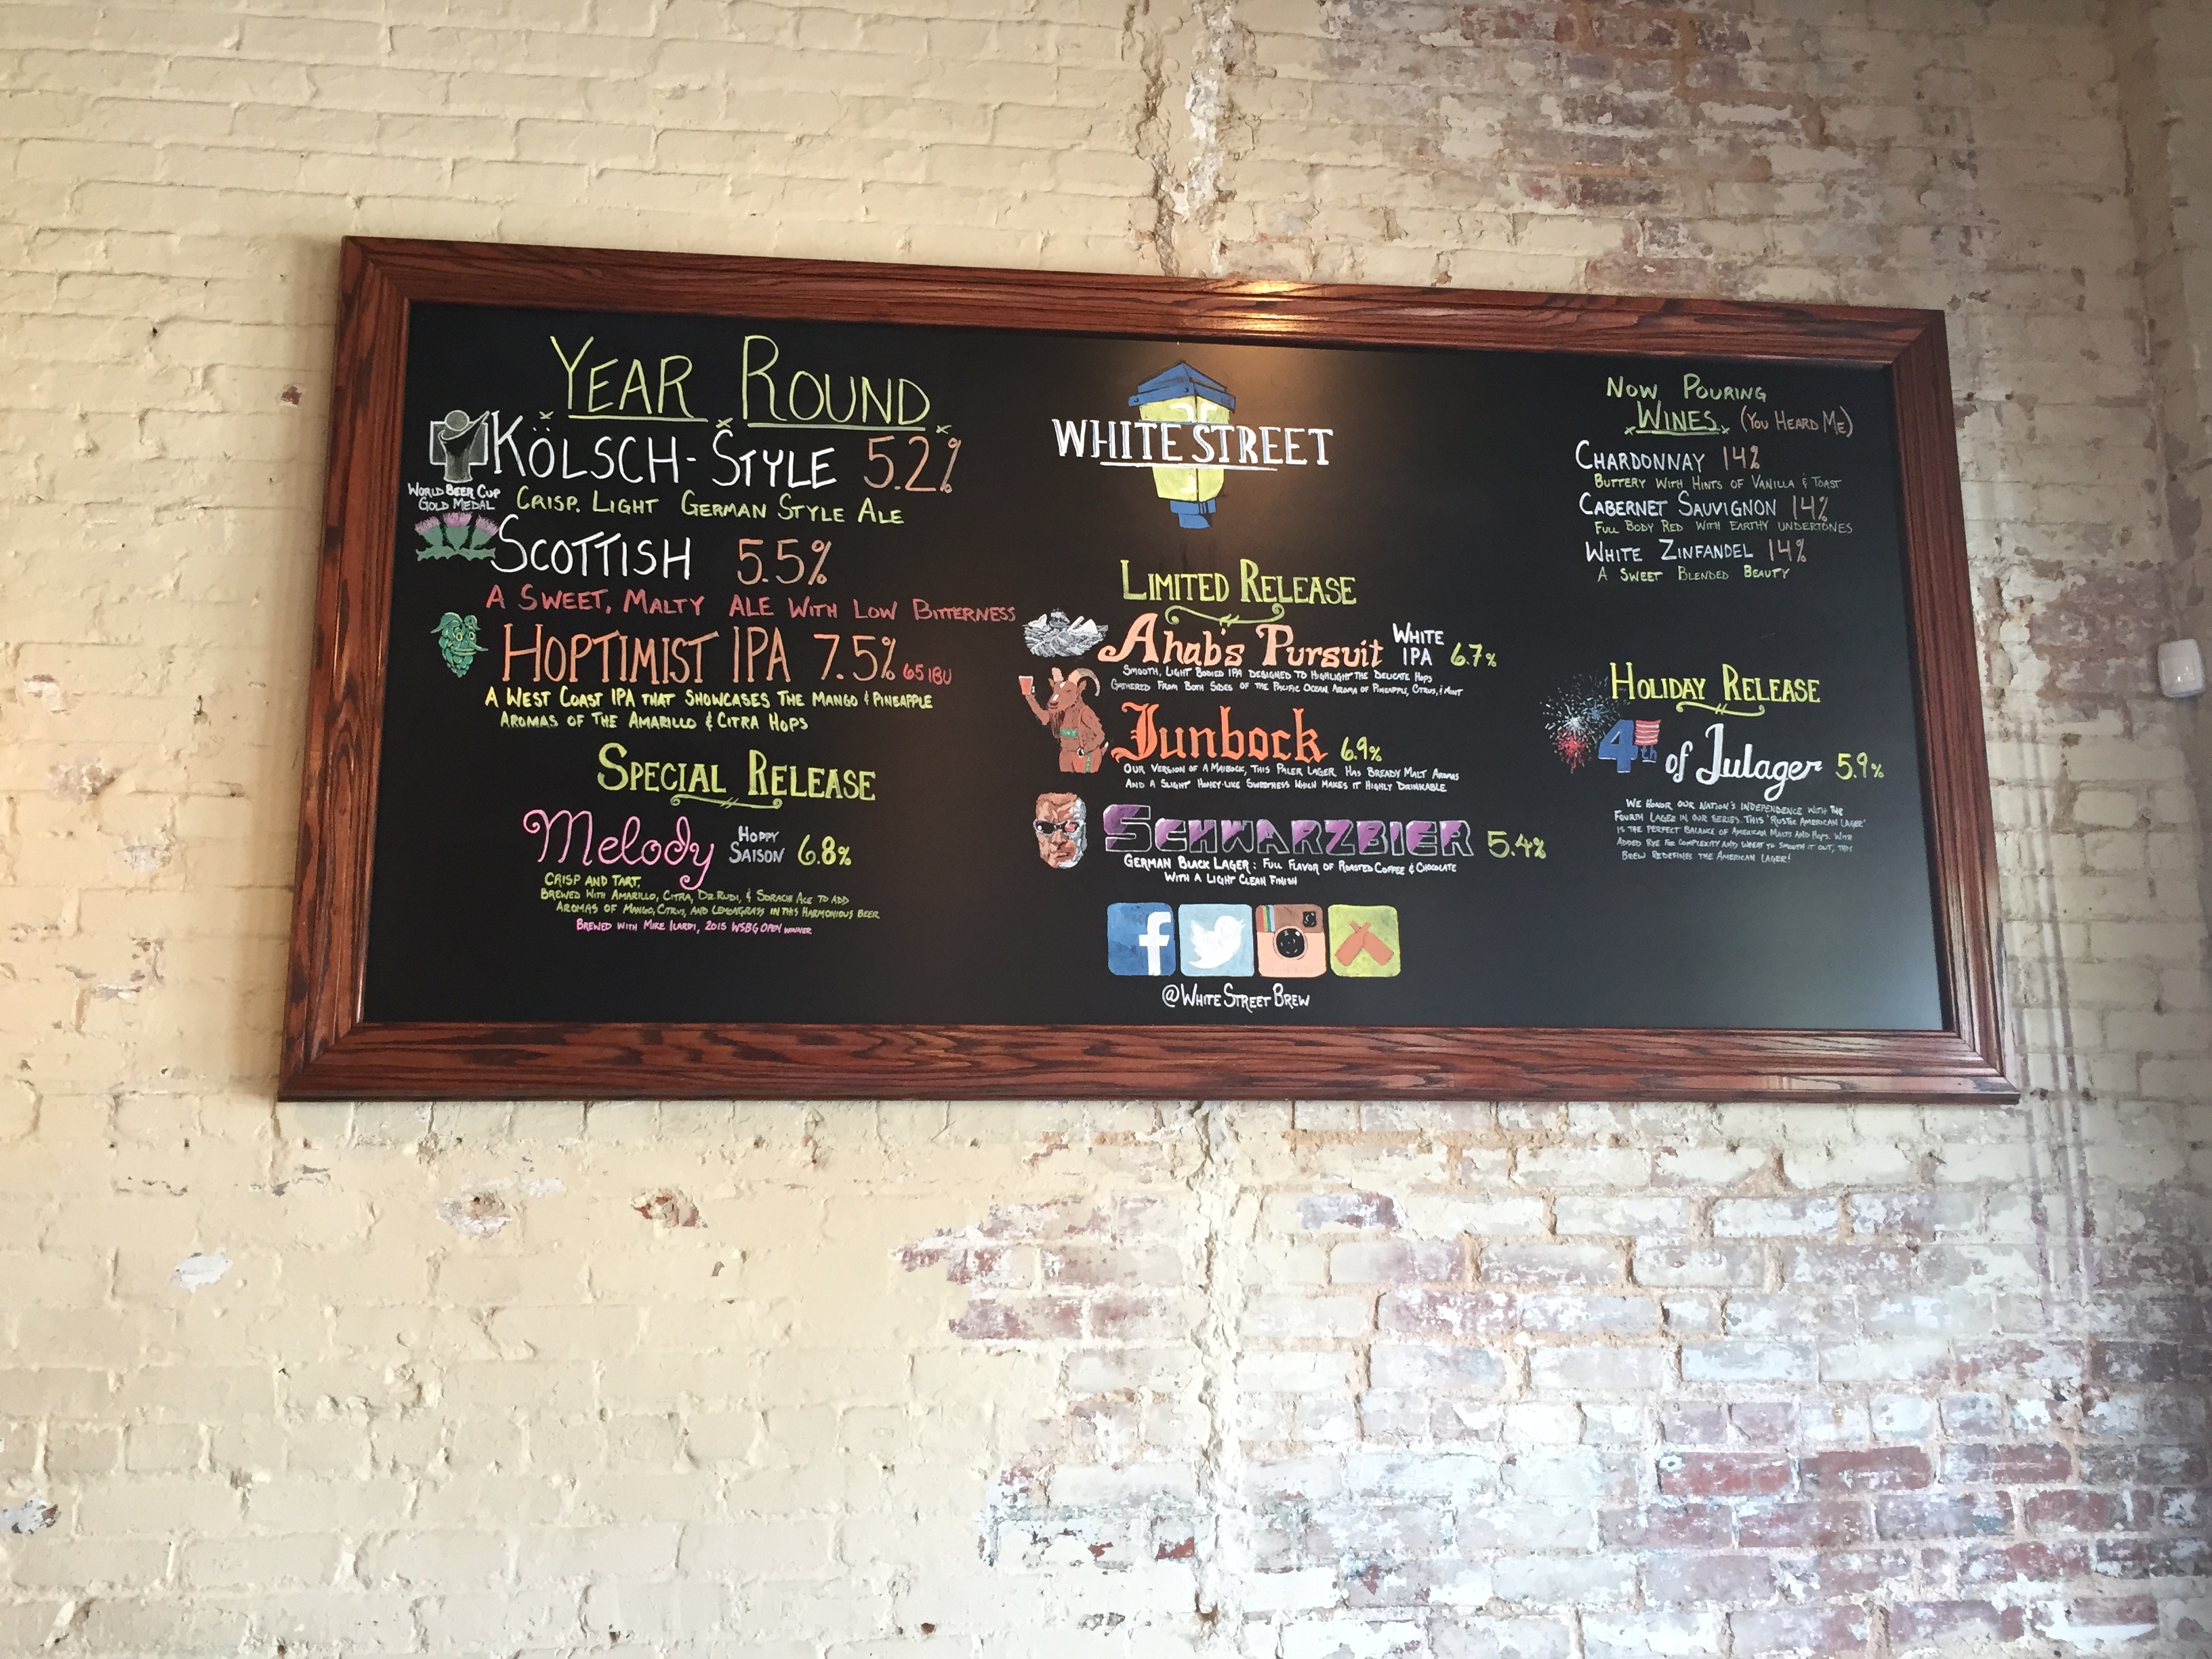 YEAR ROUND
KÖLSCH-STYLE 5.2%
WORLD BEER CUP
GOLD MEDAL
CRISP. LIGHT GERMAN STYLE ALE
SCOTTISH 5.5%
A SWEET, MALTY ALE WITH LOW BITTERNESS
HOPTIMIST IPA 7.5% 65 IBU
A WEST COAST IPA THAT SHOWCASES THE MANGO & PINEAPPLE
AROMAS OF THE AMARILLO & CITRA HOPS
SPECIAL RELEASE
Melody HOPPY SAISON 6.8%
CRISP AND TART.
BREWED WITH AMARILLO, CITRA, DR. RUDI, & SORACHI ACE TO ADD
AROMAS OF MANGO, CITRUS, AND LEMONGRASS IN THIS HARMONIOUS BEER
BREWED WITH MIKE ILARDI, 2015 WSBG OPEN WINNER
WHITE STREET
LIMITED RELEASE
Ahab's Pursuit WHITE IPA 6.7%
SMOOTH, LIGHT BODIED IPA DESIGNED TO HIGHLIGHT THE DELICATE HOPS
GATHERED FROM BOTH SIDES OF THE PACIFIC OCEAN. AROMA OF PINEAPPLE, CITRUS, & MINT
Junbock 6.9%
OUR VERSION OF A MAIBOCK, THIS PALER LAGER HAS BREADY MALT AROMAS
AND A SLIGHT HONEY-LIKE SWEETNESS WHICH MAKES IT HIGHLY DRINKABLE
SCHWARZBIER 5.4%
GERMAN BLACK LAGER: FULL FLAVOR OF ROASTED COFFEE & CHOCOLATE
WITH A LIGHT CLEAN FINISH
f
@WHITESTREETBREW
NOW POURING
WINES (YOU HEARD ME)
CHARDONNAY 14%
BUTTERY WITH HINTS OF VANILLA & TOAST
CABERNET SAUVIGNON 14%
FULL BODY RED WITH EARTHY UNDERTONES
WHITE ZINFANDEL 14%
A SWEET BLENDED BEAUTY
HOLIDAY RELEASE
4th of Julager 5.9%
WE HONOR OUR NATION'S INDEPENDENCE WITH THE
FOURTH LAGER IN OUR SERIES. THIS "RUSTIC AMERICAN LAGER"
IS THE PERFECT BALANCE OF AMERICAN MALTS AND HOPS. WITH
ADDED RYE FOR COMPLEXITY AND WHEAT TO SMOOTH IT OUT, THIS
BREW REDEFINES THE AMERICAN LAGER!